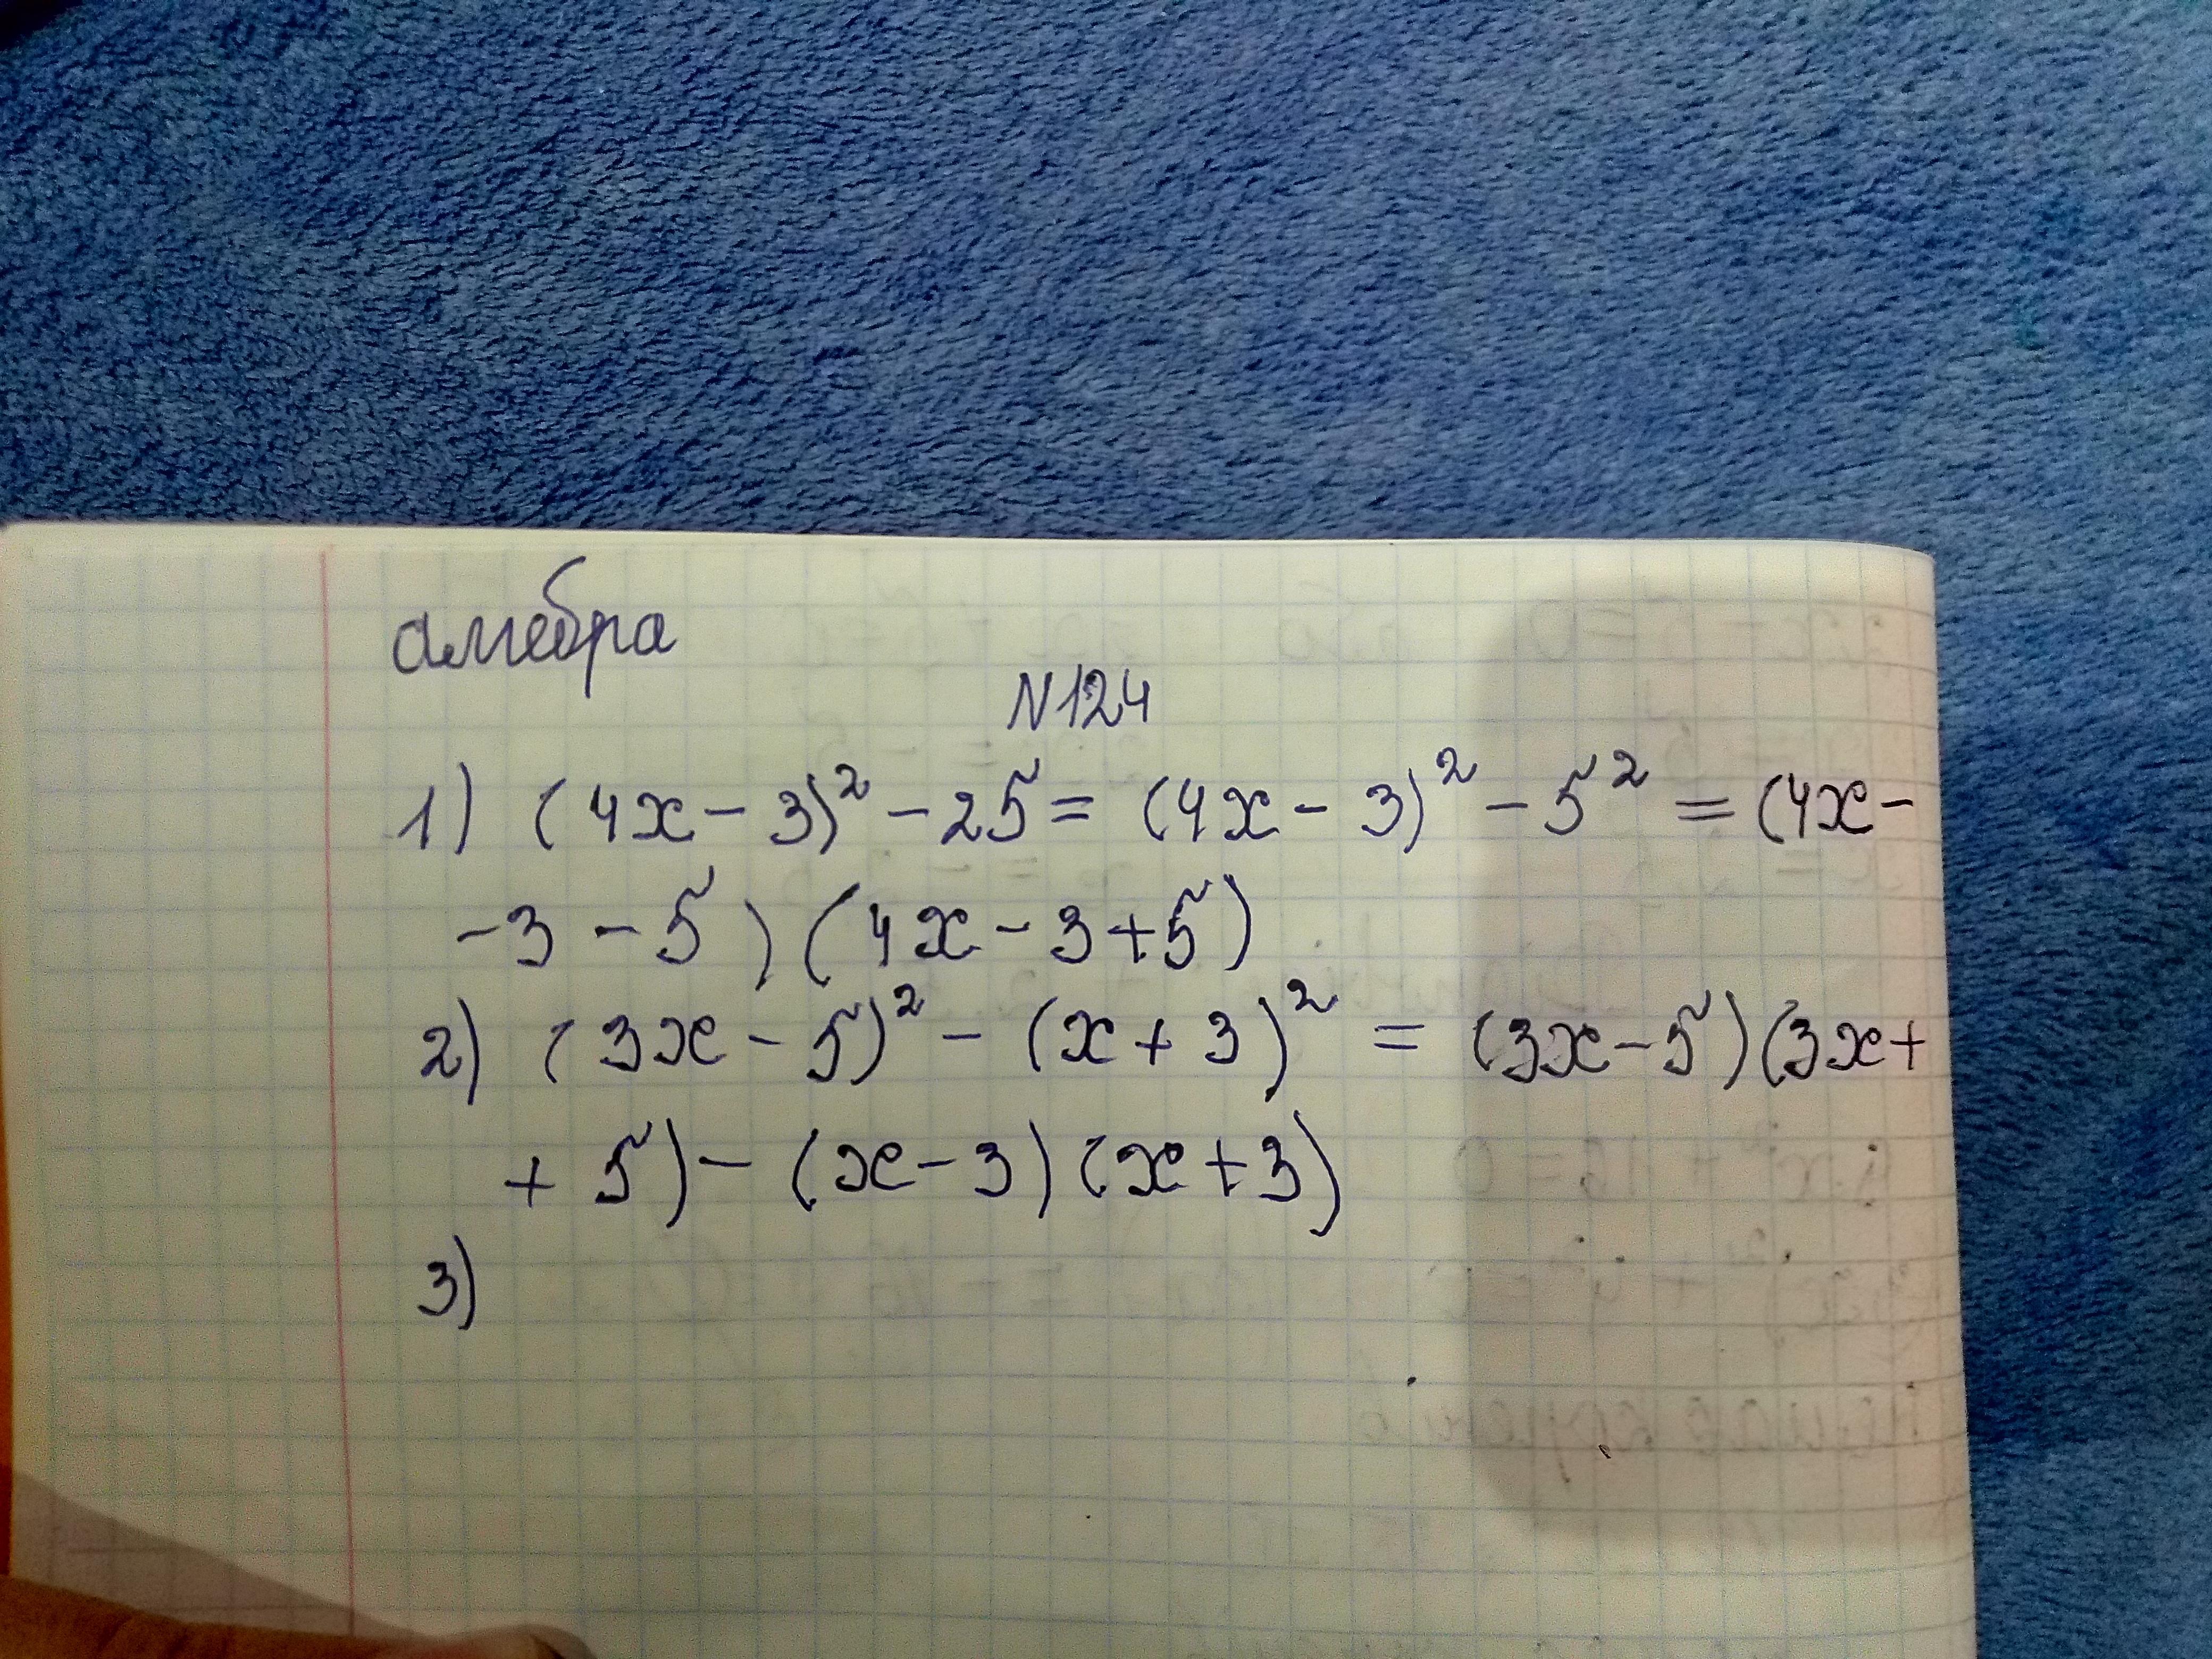 алгебра
N124
1) (4x - 3)² - 25 = (4x - 3)² - 5² = (4x -
- 3 - 5) (4x - 3 + 5)
2) (3x - 5)² - (x + 3)² = (3x - 5) (3x +
+ 5) - (x - 3) (x + 3)
3)